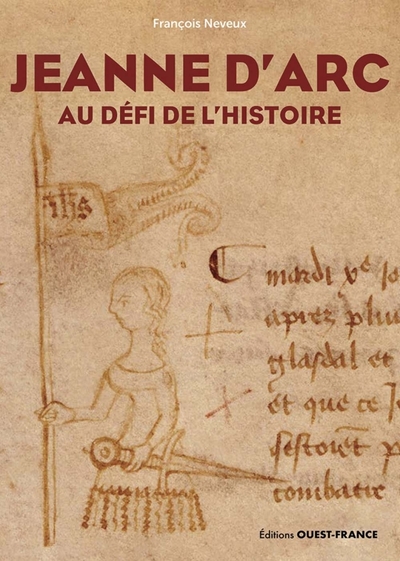 François Neveux
JEANNE D'ARC
AU DÉFI DE L'HISTOIRE
ihs
mardi
apres
glasdal et
et que ce
combatre
Éditions OUEST-FRANCE